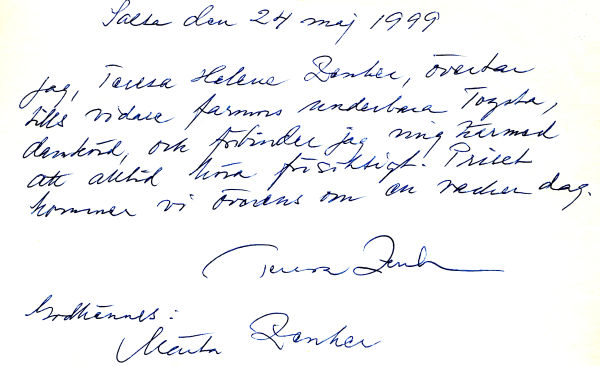 Salsa den 24 maj 1999
Jag, Teresa Helene Denker, övertar
tills vidare farmors underbara Toyota,
och förbinder jag mig härmed
att alltid köra försiktigt. Priset
kommer vi överens om en vacker dag.
Teresa Denk
Godkännes:
Märta Denker